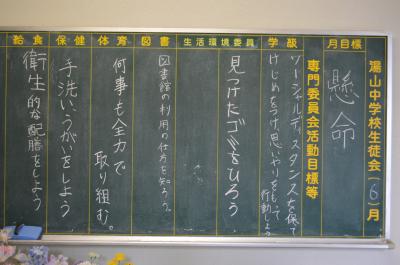 湯山中学校生徒会(6)月
専門委員会活動目標等
月目標
懸命
学級
ソーシャルディスタンスを保て
けじめをつけ、思いやりをもって
行動しよう
生活環境委員
見つけたゴミをひろう
図書
図書館の利用の仕方を知ろう。
体育
何事も全力で
取り組む。
保健
手洗い、うがいをしよう
給食
衛生的な配膳をしよう